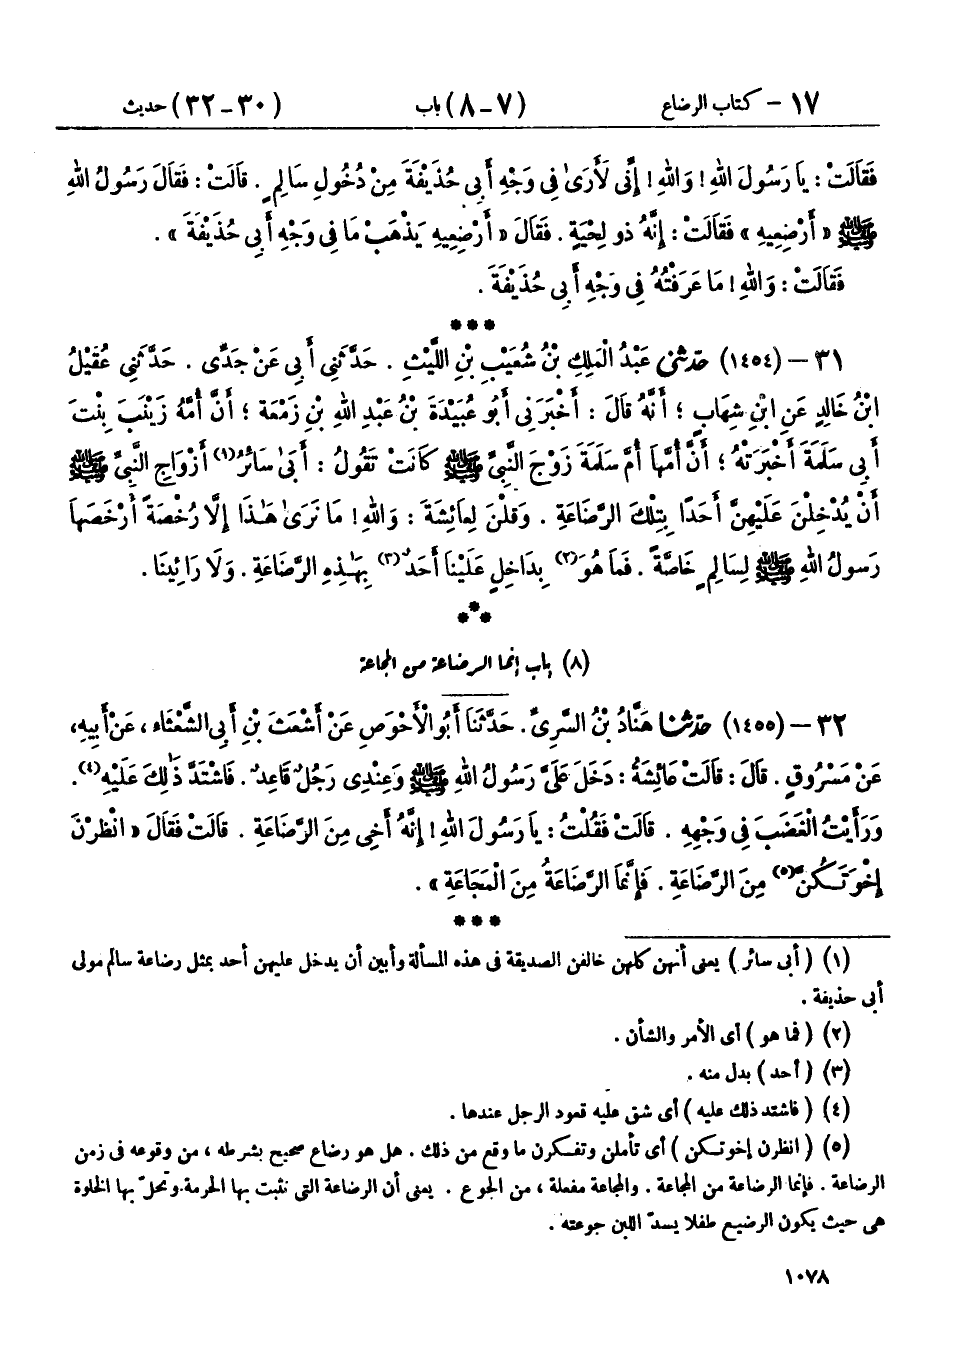 ١٧ - كتاب الرضاع (٧-٨) باب (٣٠-٣٢) حديث
فَقَالَتْ : يَا رَسُولَ اللهِ ! وَاللهِ ! إِنِّي لَأَرَىٰ فِي وَجْهِ أَبِي حُذَيْفَةَ مِنْ دُخُولِ سَالِمٍ . قَالَتْ : فَقَالَ رَسُولُ اللهِ
ﷺ « أَرْضِعِيهِ » فَقَالَتْ : إِنَّهُ ذُو لِحْيَةٍ . فَقَالَ « أَرْضِعِيهِ يَذْهَبْ مَا فِي وَجْهِ أَبِي حُذَيْفَةَ » .
فَقَالَتْ : وَاللهِ ! مَا عَرَفْتُهُ فِي وَجْهِ أَبِي حُذَيْفَةَ .
***
٣١ - (١٤٥٤) حَدَّثَنِي عَبْدُ الْمَلِكِ بْنُ شُعَيْبِ بْنِ اللَّيْثِ . حَدَّثَنِي أَبِي عَنْ جَدِّي . حَدَّثَنِي عُقَيْلُ
ابْنُ خَالِدٍ عَنِ ابْنِ شِهَابٍ ؛ أَنَّهُ قَالَ : أَخْبَرَنِي أَبُو عُبَيْدَةَ بْنُ عَبْدِ اللهِ بْنِ زَمْعَةَ ؛ أَنَّ أُمَّهُ زَيْنَبَ بِنْتَ
أَبِي سَلَمَةَ أَخْبَرَتْهُ ؛ أَنَّ أُمَّهَا أُمَّ سَلَمَةَ زَوْجَ النَّبِيِّ ﷺ كَانَتْ تَقُولُ : أَبَىٰ سَائِرُ(١) أَزْوَاجِ النَّبِيِّ ﷺ
أَنْ يُدْخِلْنَ عَلَيْهِنَّ أَحَدًا بِتِلْكَ الرَّضَاعَةِ . وَقُلْنَ لِعَائِشَةَ : وَاللهِ ! مَا نَرَىٰ هَـٰذَا إِلَّا رُخْصَةً أَرْخَصَهَا
رَسُولُ اللهِ ﷺ لِسَالِمٍ خَاصَّةً . فَمَا هُوَ(٢) بِدَاخِلٍ عَلَيْنَا أَحَدٌ(٣) بِهَـٰذِهِ الرَّضَاعَةِ . وَلَا رَائِينَا .
***
(٨) باب إنما الرضاعة من المجاعة
٣٢ - (١٤٥٥) حَدَّثَنَا هَنَّادُ بْنُ السَّرِيِّ . حَدَّثَنَا أَبُو الْأَحْوَصِ عَنْ أَشْعَثَ بْنِ أَبِي الشَّعْثَاءِ ، عَنْ أَبِيهِ ،
عَنْ مَسْرُوقٍ . قَالَ : قَالَتْ عَائِشَةُ : دَخَلَ عَلَيَّ رَسُولُ اللهِ ﷺ وَعِنْدِي رَجُلٌ قَاعِدٌ . فَاشْتَدَّ ذَٰلِكَ عَلَيْهِ(٤) .
وَرَأَيْتُ الْغَضَبَ فِي وَجْهِهِ . قَالَتْ فَقُلْتُ : يَا رَسُولَ اللهِ ! إِنَّهُ أَخِي مِنَ الرَّضَاعَةِ . قَالَتْ فَقَالَ « انْظُرْنَ
إِخْوَتَكُنَّ(٥) مِنَ الرَّضَاعَةِ . فَإِنَّمَا الرَّضَاعَةُ مِنَ الْمَجَاعَةِ » .
***
(١) ( أبى سائر ) يعنى أنهن كلهن خالفن الصديقة فى هذه المسألة وأبين أن يدخل عليهن أحد بمثل رضاعة سالم مولى
أبى حذيفة .
(٢) ( فما هو ) أى الأمر والشأن .
(٣) ( أحد ) بدل منه .
(٤) ( فاشتد ذلك عليه ) أى شق عليه قعود الرجل عندها .
(٥) ( انظرن إخوتكن ) أى تأملن وتفكرن ما وقع من ذلك . هل هو رضاع صحيح بشرطه ، من وقوعه فى زمن
الرضاعة . فإنما الرضاعة من المجاعة . والمجاعة مفعلة ، من الجوع . يعنى أن الرضاعة التى تثبت بها الحرمة وتحلّ بها الخلوة
هى حيث يكون الرضيع طفلا يسدّ اللبن جوعته .
١٠٧٨